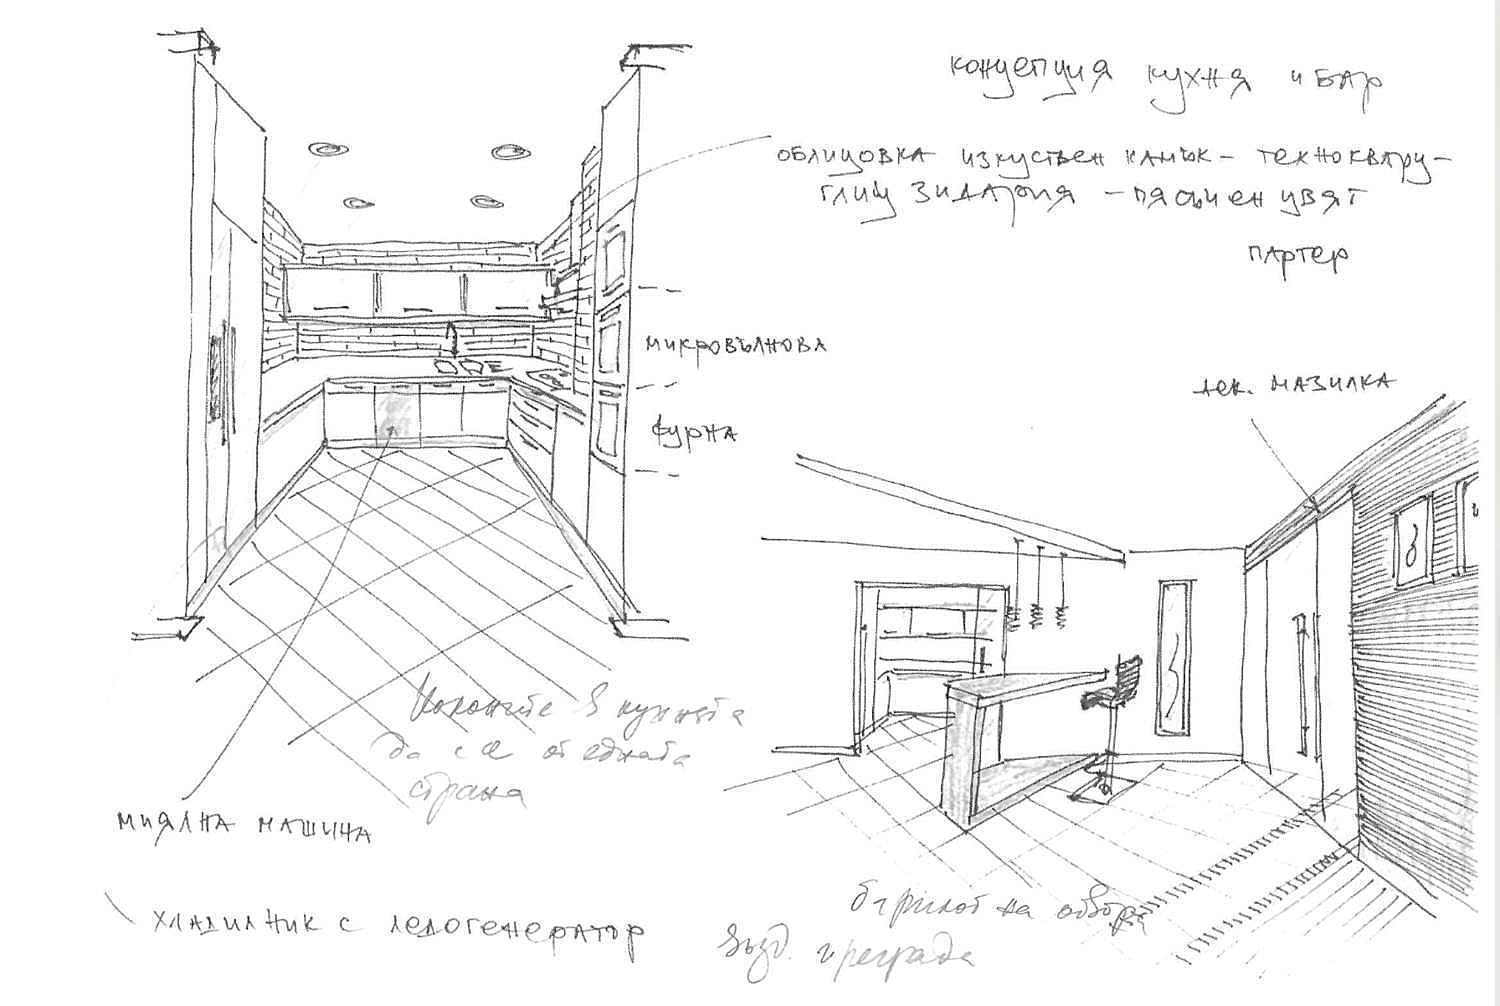 концепция кухня и бар
облицовка изкуствен камък - технокварц -
глиц зидария - пясъчен цвят
партер
микровълнова
дек. мазилка
фурна
в кухнята
да са от едната
страна
миялна машина
хладилник с ледогенератор
на отвора